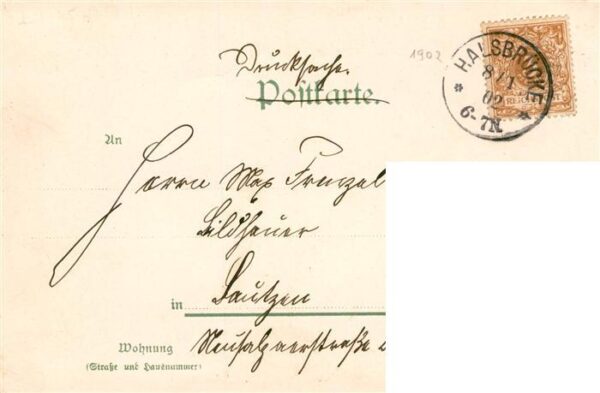 1902
HALSBRÜCKE
8/1
02
6-7N.
REICHSPOST
Drucksache.
Postkarte.
An
Herrn Max Frenzel
Bildhauer
in Bautzen
Wohnung
(Straße und Hausnummer)